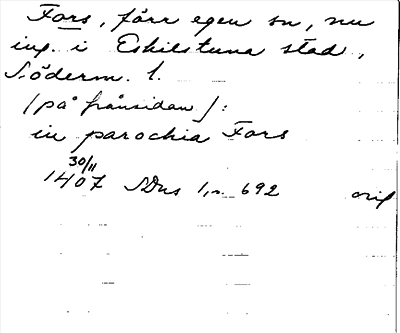 Fors, förr egen sn, nu
ing. i Eskilstuna stad,
Söderm. l.
[på frånsidan]:
in parochia Fors
30/11
1407 SDns 1, n. 692 orig